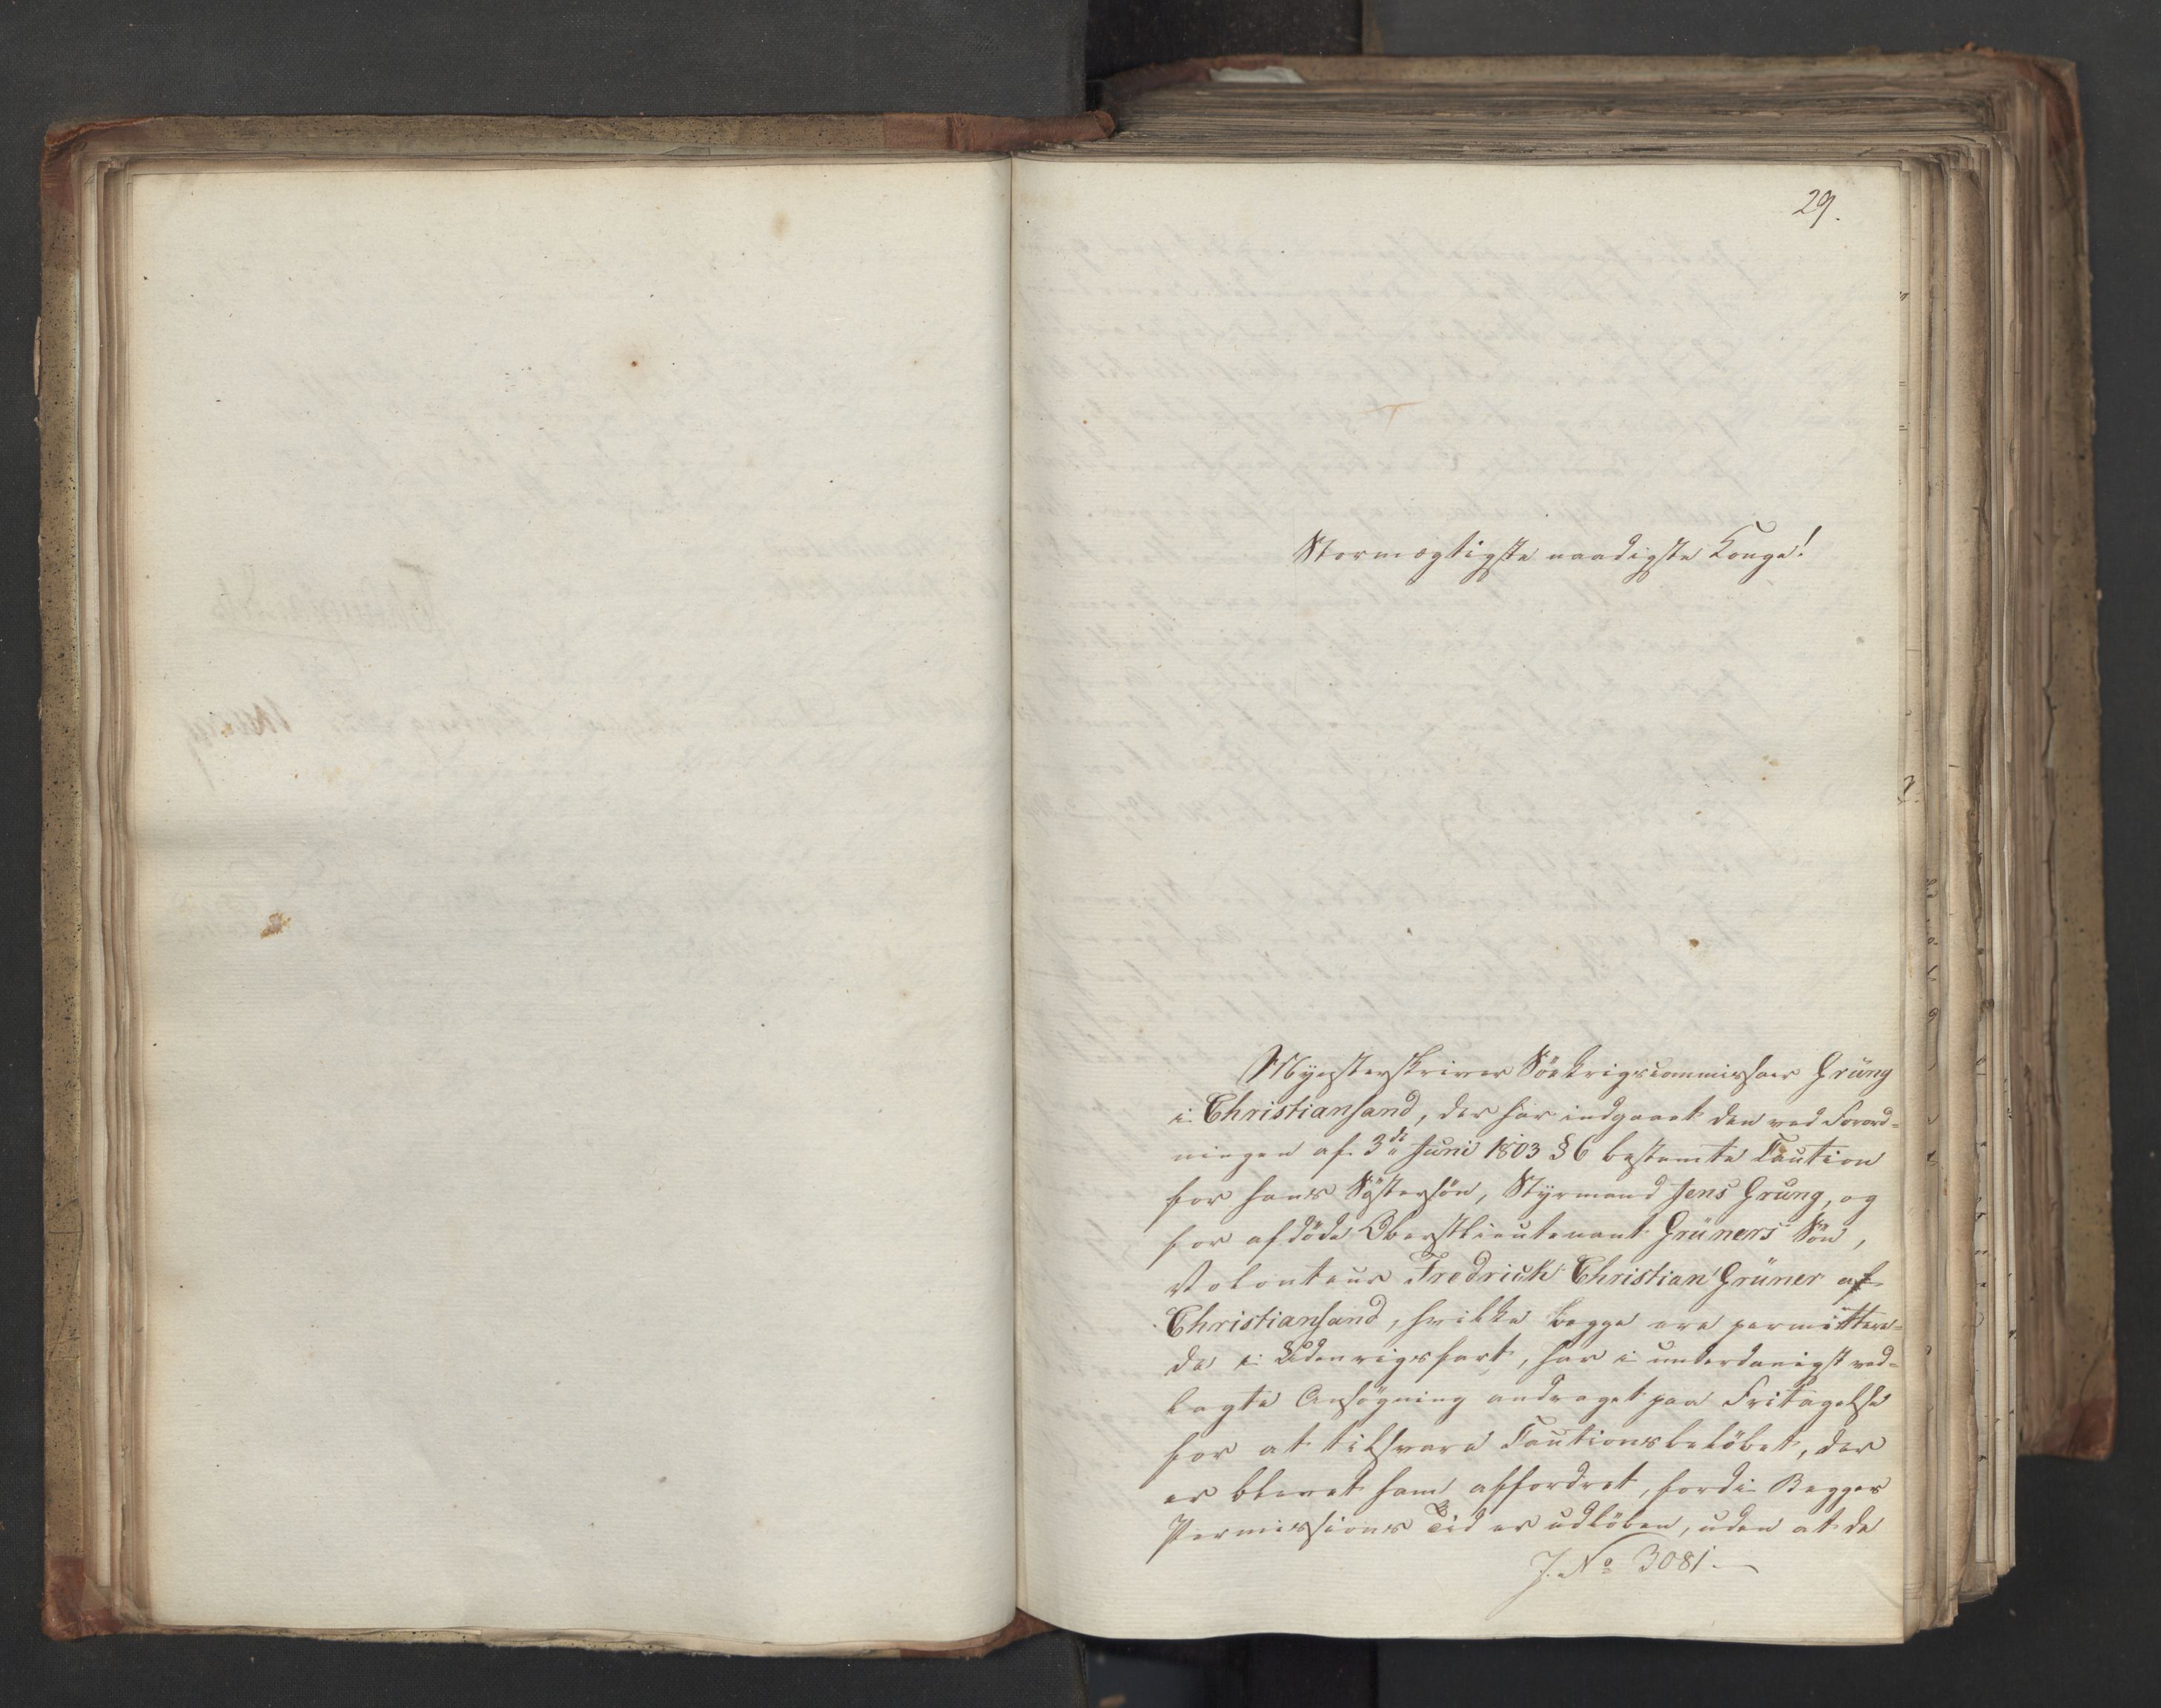 29.
Stormægtigste naadigste Konge!
Mynsterskriver Söekrigscommissair Grüng
i Christiansand, der har indgaaet den ved Forord=
ningen af 3de Juni 1803 § 6 bestemte Caution
for hans Søstersön, Styrmand Jens Grüng, og
for afdöde Oberstlieutenant Grüners Sön,
Volonteur Fredrich Christian Grüner af
Christiansand, hvilke begge ere permittere=
de i Udenrigsfart, har i underdanigst ved=
lagte Ansögning andraget paa Fritagelse
for at tilsvare Cautionsbelöbet, der
er blevet ham affordret, fordi Begges
Permissions Tid er udlöben, uden at de
J. No 3081.